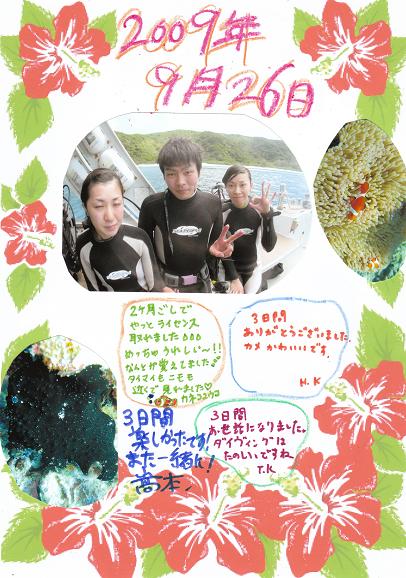 2009年
9月26日
2ヶ月ごしで
やっとライセンス
取れました
めっちゃうれしい~!!
なんとか覚えました
タイマイもニモも
近くで見れました
3日間
ありがとうございました
カメかわいいです。
H.K
3日間
楽しかったです!
また一緒に!
高本
3日間
お世話になりました。
ダイヴィングは
たのしいですね
T.K